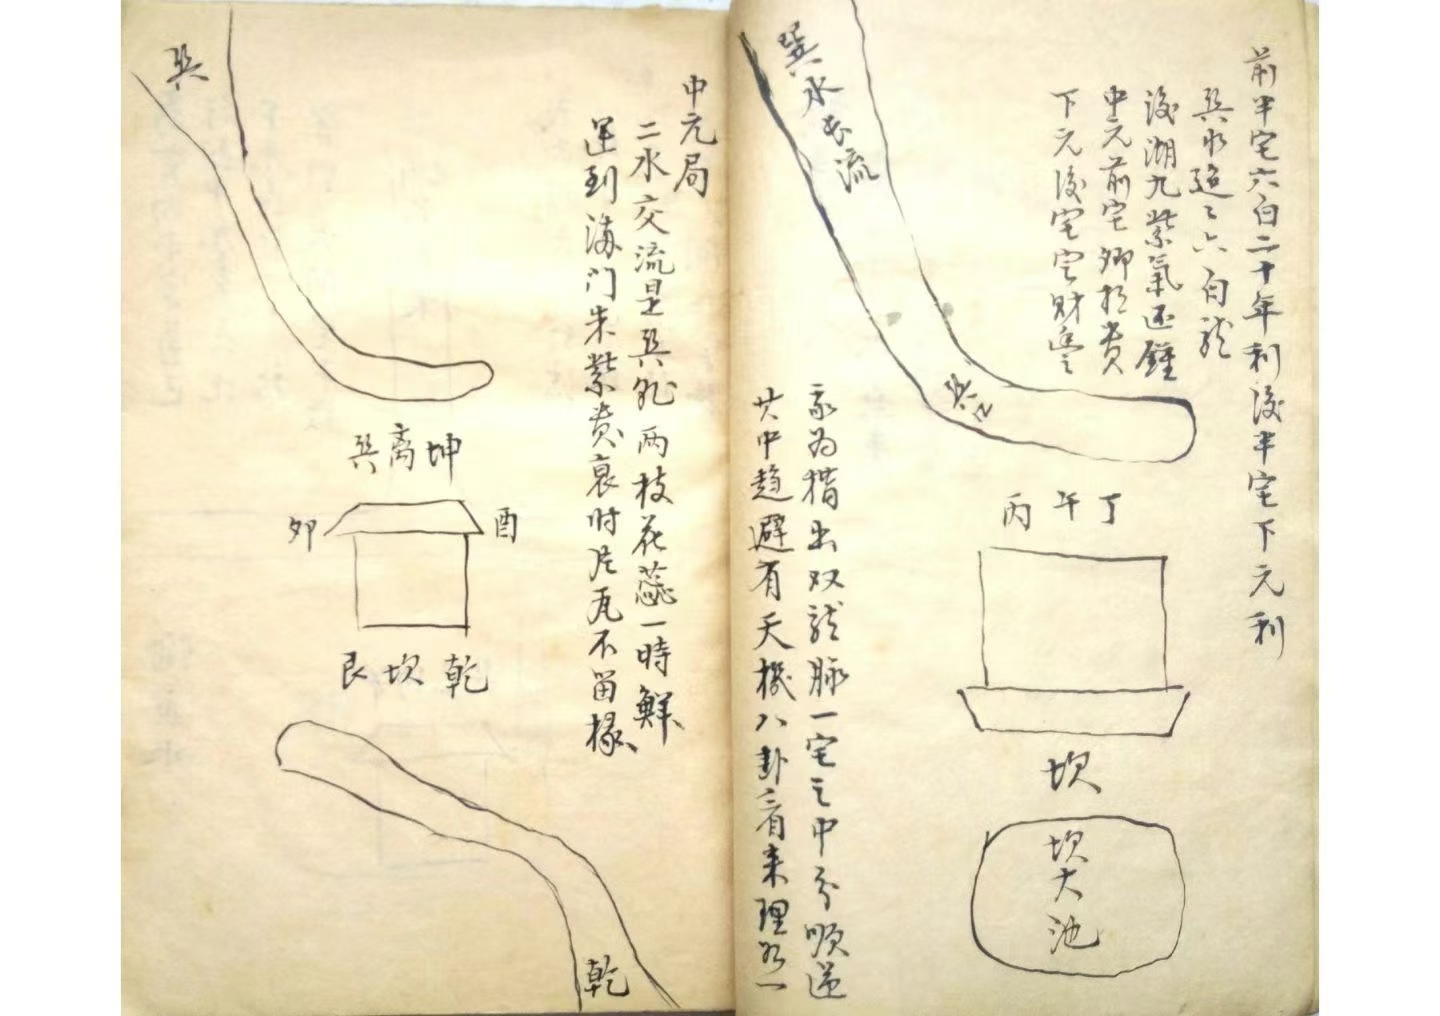 前半宅六白二十年利後半宅下元利
巽水迢々六白龍
後湖九紫氣還鍾
中元前宅卿相貴
下元後宅定財豐
巽水長流
巽
丙午丁
坎
坎大池
我為揹出双龍脉一宅之中分順逆
其中趨避有天機八卦看来理為一
中元局
二水交流是巽乾两枝花蕊一時鮮
運到海门朱紫贵衰时片瓦不留椽
巽
巽離坤
卯
酉
艮坎乾
乾